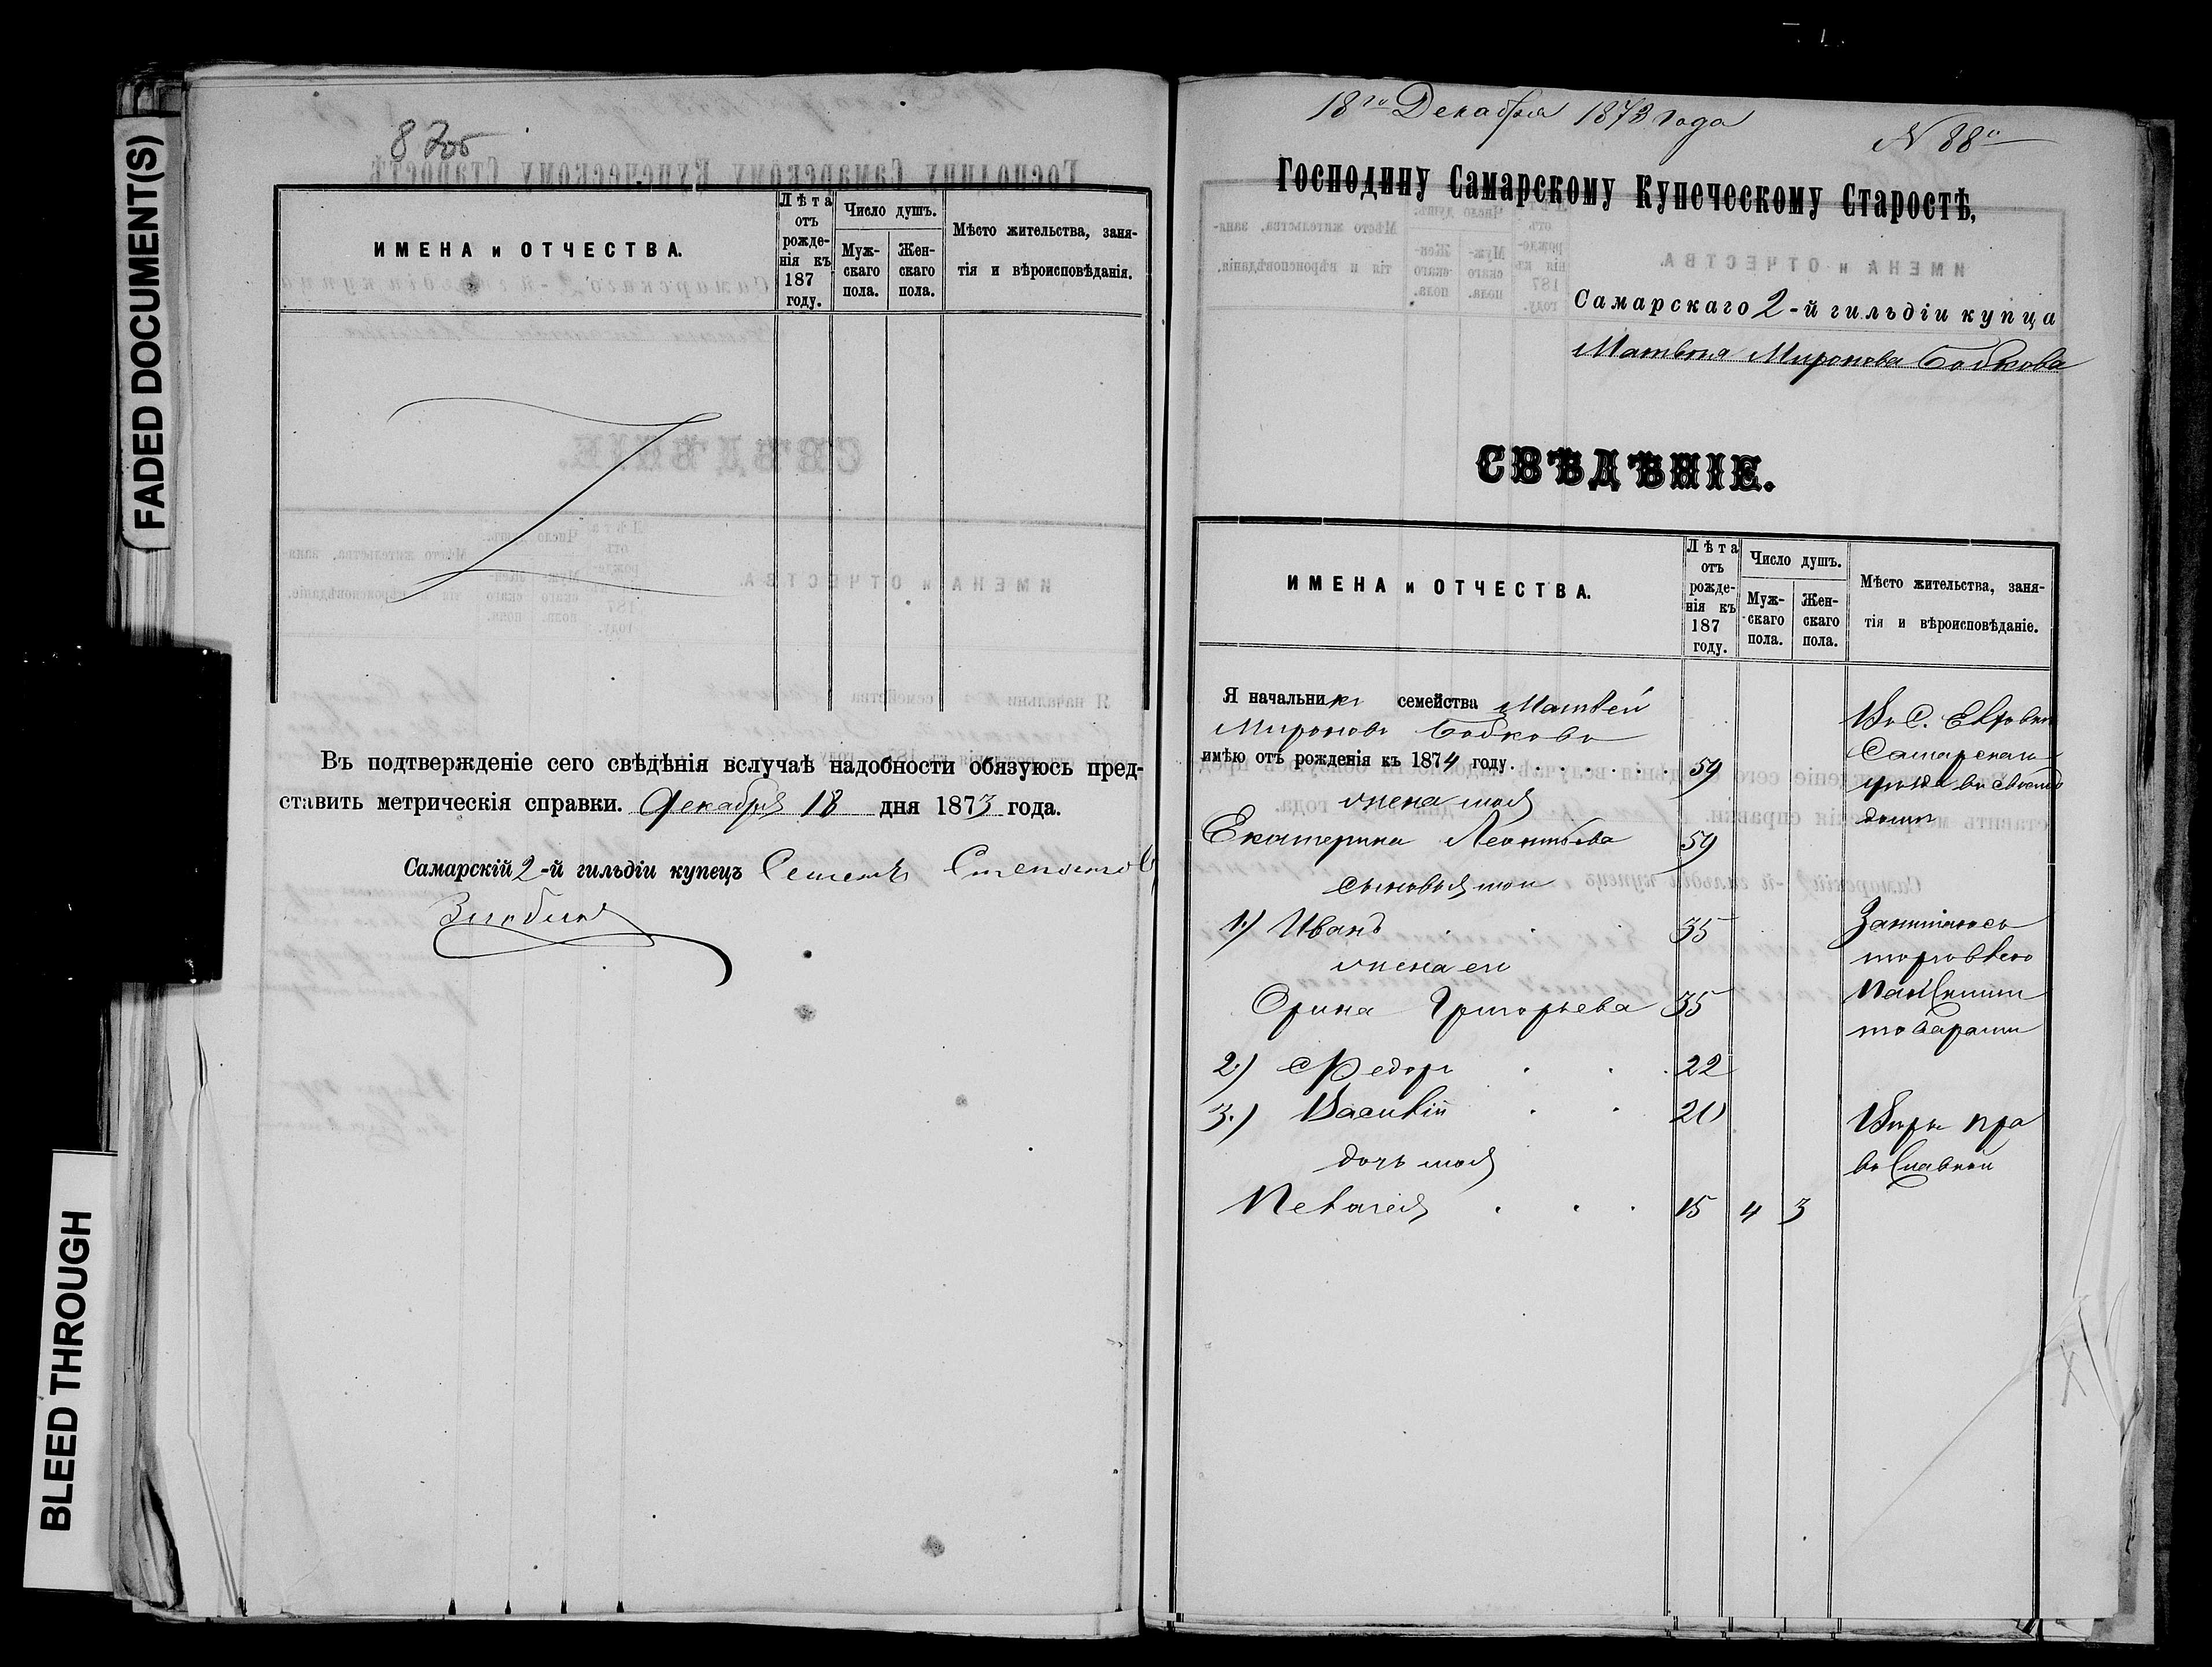 FADED DOCUMENT(S)
BLEED THROUGH
87об
ИМЕНА и ОТЧЕСТВА.
Лѣта отъ рожденія къ 187 году.
Число душъ.
Мужскаго пола.
Женскаго пола.
Мѣсто жительства, занятія и вѣроисповѣданія.
Въ подтвержденіе сего свѣдѣнія вслучаѣ надобности обязуюсь пред-
ставить метрическія справки. Декабря 18 дня 1873 года.
Самарскій 2-й гильдіи купецъ Семенъ Степановъ
18го Декабря 1873 года
N 88й
Господину Самарскому Купеческому Старостѣ,
Самарскаго 2-й гильдіи купца
Матвѣя Миронова Бобкова
СВѢДѢНІЕ.
ИМЕНА и ОТЧЕСТВА.
Лѣта отъ рожденія къ 187 году.
Число душъ.
Мужскаго пола.
Женскаго пола.
Мѣсто жительства, занятія и вѣроисповѣданіе.
Я начальникъ семейства Матвей
Мироновъ Бобковъ
имѣю отъ рожденія къ 1874 году 59
жена моя
Екатерина Леонтьева 59
сыновья мои
1.) Иванъ 35
жена его
Орина Григорьева 35
2.) Федоръ 22
3.) Василій 20
дочь моя
Пелагея 15 4 3
Въ С.
Самарскаго
уѣзда въ своемъ
доми
Занимаюсь
торговлею
торавами
Вѣры пра
вославной